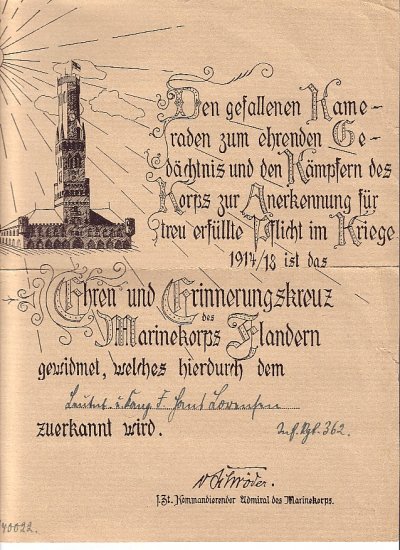 Den gefallenen Kame-
raden zum ehrenden Ge-
dächtnis und den Kämpfern des
Korps zur Anerkennung für
treu erfüllte Pflicht im Kriege
1914/18 ist das
Ehren und Erinnerungskreuz
des
Marinekorps Flandern
gewidmet, welches hierdurch dem
Leutnt. Hans Lorensen
zuerkannt wird. 362.
v Schröder.
z.Zt. Kommandierender Admiral des Marinekorps.
40022.